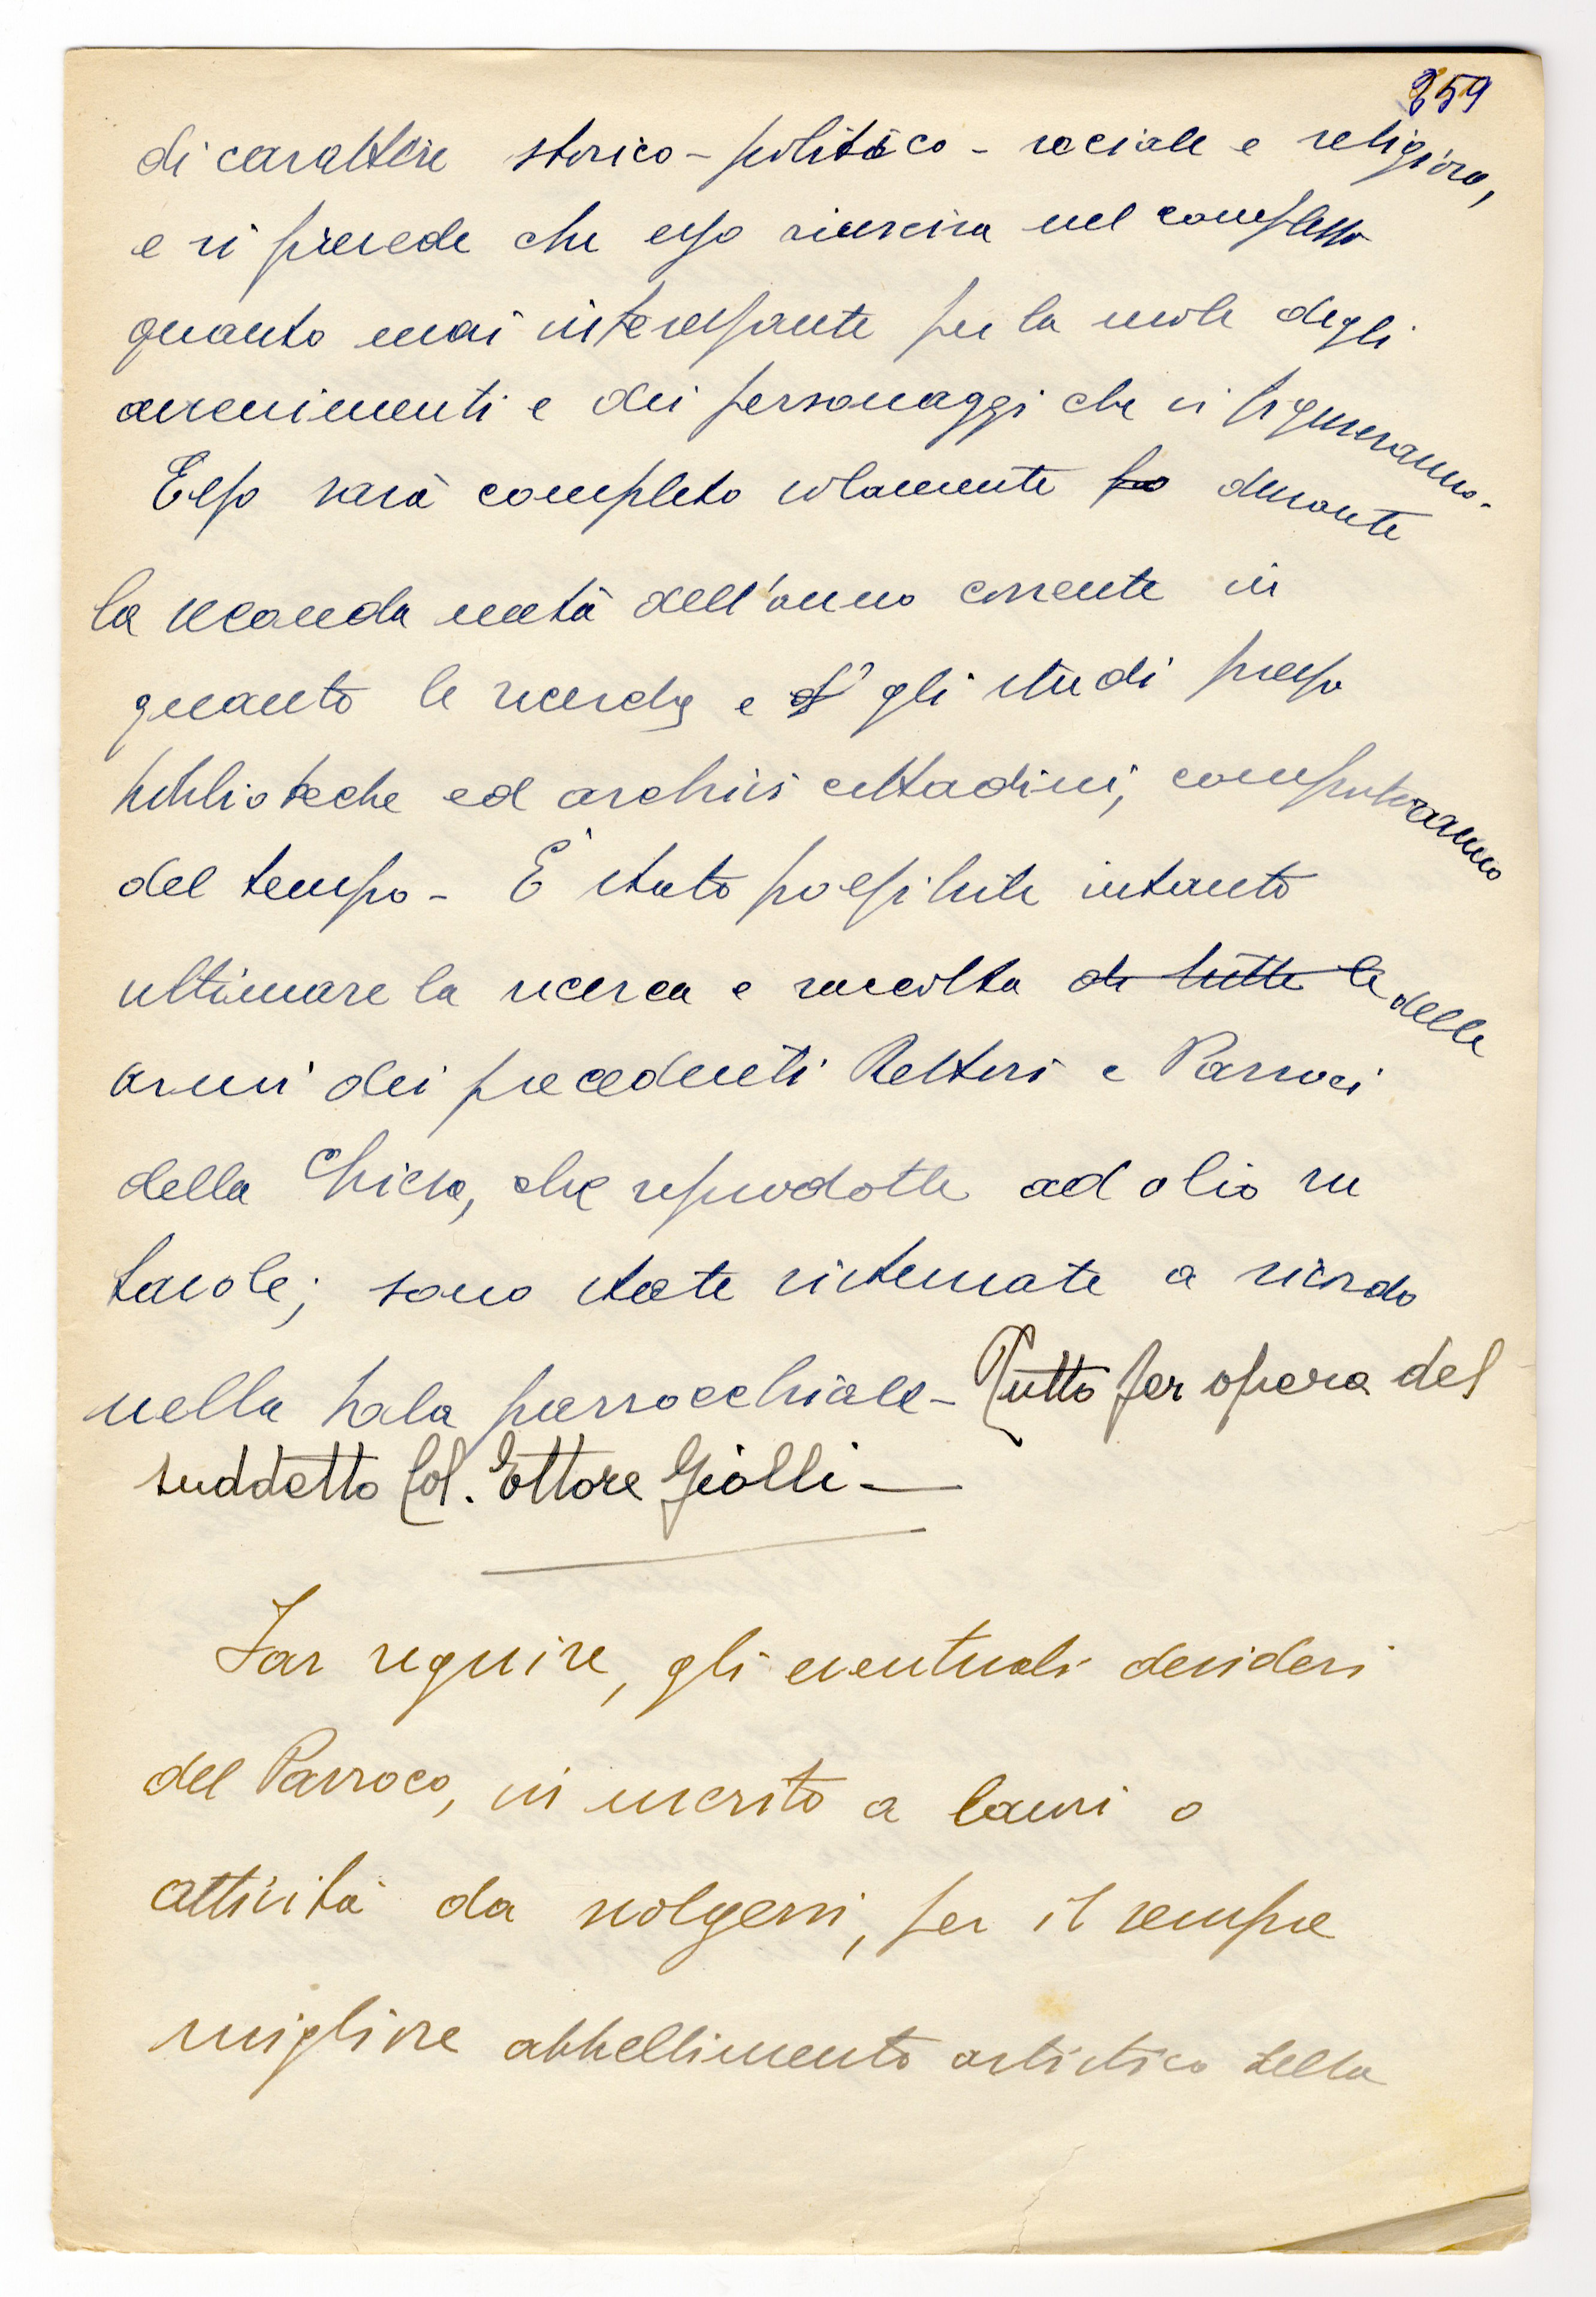 259
di carattere storico - politico - sociale e religioso,
e si prevede che esso riuscirà nel complesso
quanto mai interessante per la mole degli
avvenimenti e dei personaggi che vi figureranno.
Esso sarà completo solamente durante
la seconda metà dell'anno corrente in
quanto le ricerche e gli studi presso
biblioteche ed archivi cittadini, comporteranno
del tempo - E' stato possibile intanto
ultimare la ricerca e raccolta di tutte le delle
armi dei precedenti Rettori e Parroci
della Chiesa, che riprodotte ad olio su
tavole; sono state sistemate a ricordo
nella sala parrocchiale - Tutto per opera del
suddetto Col. Ettore Giolli -
Far seguire, gli eventuali desideri
del Parroco, in merito a lavori o
attività da svolgersi, per il sempre
migliore abbellimento artistico della